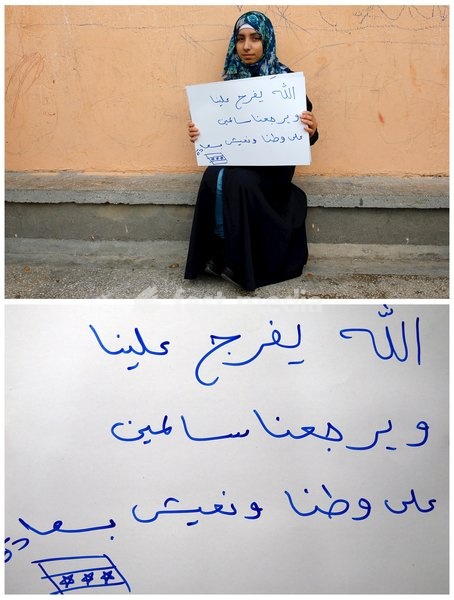 الله يفرج علينا
ويرجعنا سالمين
على وطنا ونعيش بسعادة
الله يفرج علينا
ويرجعنا سالمين
على وطنا ونعيش بسعادة